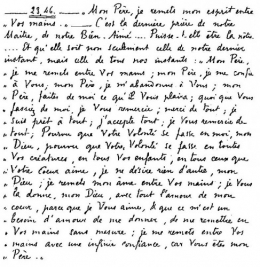 — 23,46. — „ Mon Père, je remets mon esprit entre
„ Vos mains „. — C'est la dernière prière de notre
Maître, de notre Bien-Aimé.... Puisse-t-elle être la nôtre.
.... Et qu'elle soit non seulement celle de notre dernier
instant, mais celle de tous nos instants : „ Mon Père,
„ je me remets entre Vos mains ; mon Père, je me confie
„ à Vous ; mon Père, je m'abandonne à Vous ; mon
„ Père, faites de moi ce qu'il Vous plaira ; quoi que Vous
„ fassiez de moi, je Vous remercie ; merci de tout ; je
„ suis prêt à tout ; j'accepte tout ; je Vous remercie de
„ tout ; Pourvu que Votre Volonté se fasse en moi, mon
„ Dieu, pourvu que Votre Volonté se fasse en toutes
„ Vos créatures, en tous Vos enfants, en tous ceux que
„ Votre Cœur aime, je ne désire rien d'autre, mon
„ Dieu ; je remets mon âme entre Vos mains ; je Vous
„ la donne, mon Dieu, avec tout l'amour de mon
„ cœur, parce que je Vous aime, & que ce m'est un
„ besoin d'amour de me donner, de me remettre en
„ Vos mains sans mesure ; je me remets entre Vos
„ mains avec une infinie confiance, car Vous êtes mon
„ Père...